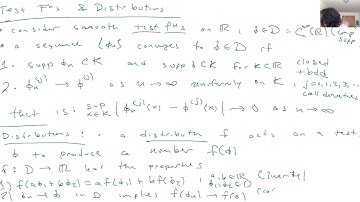 Test Fns & Distributions
consider smooth test fns on ℝ, φ∈D = C_c^∞(ℝ) (comp supp
a sequence {φn} converges to φ∈D if
1. supp φn ⊂ K and supp φ ⊂ K for K⊂ℝ closed + bdd
2. φn^(j) → φ^(j) as n → ∞ uniformly on K, j=0,1,2,3, ... all derivatives
that is: sup x∈K | φn^(j)(x) - φ^(j)(x) | → 0 as n → ∞
Distributions: a distribution f acts on a test
φ to produce a number f(φ)
f: D → ℝ has the properties
1) f(aφ1 + bφ2) = a f(φ1) + b f(φ2), a,b∈ℝ φ1,φ2∈D (linearity)
2) φn → φ in D implies f(φn) → f(φ) (co